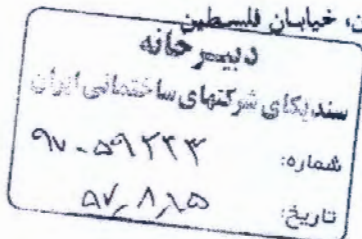 ، خیابان فلسطین
دبیرخانه
سندیکای شرکتهای ساختمانی ایران
شماره: ۹۷-۵۹۲۳۳
تاریخ: ۹۷,۸,۱۵